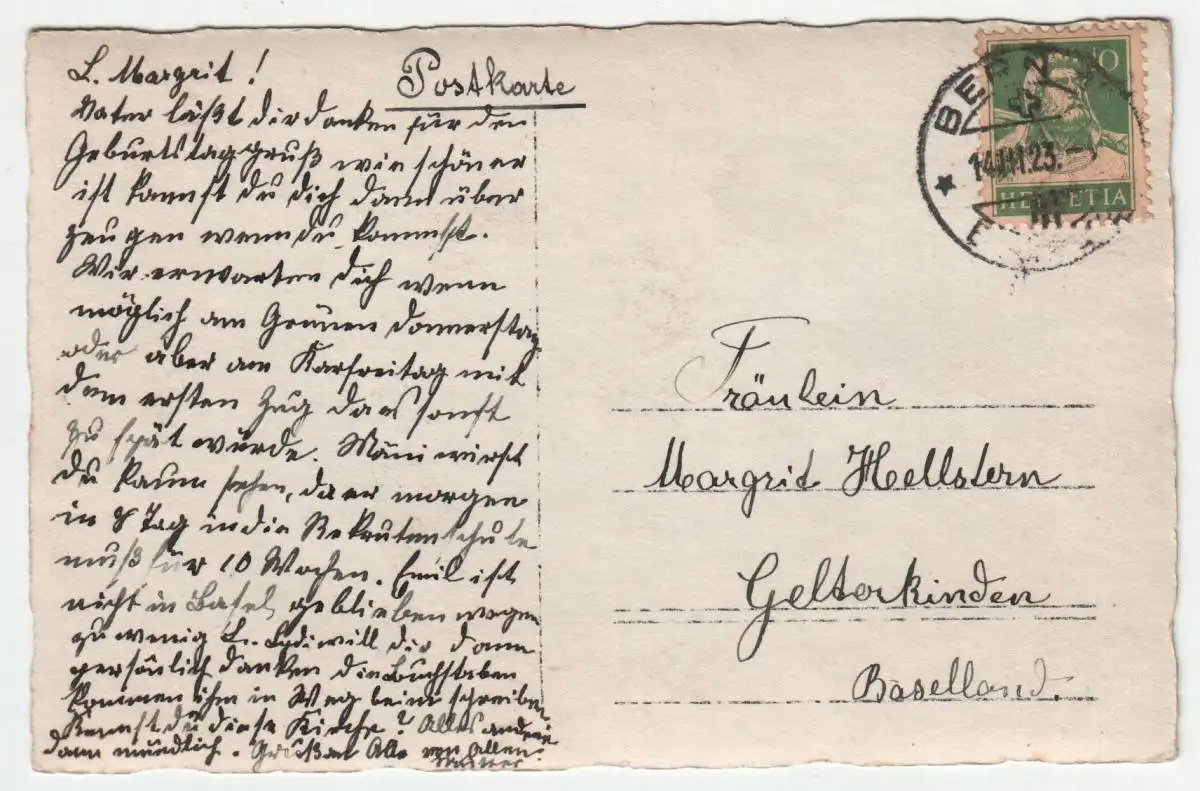 L. Margrit!
Postkarte
Vater läßt dir danken für den
Geburtstaggruß wie schöner
ist kannst du dich dann über
zeugen wenn du kommst.
Wir erwarten dich wenn
möglich am Grünen Donnerstag
oder aber am Karfreitag mit
dem ersten Zug da es sonst
zu spät würde. Mäni wirst
du kaum sehen, da er morgen
in 8 Tag in die Rekrutenschule
muß für 10 Wochen. Emil ist
nicht in Basel geblieben wegen
zu wenig L. will dir dann
persönlich danken die Buchstaben
kommen ihm in Weg beim schreiben
Kennst du diese Kirche? Alles andere
dann mündlich. Grüße an Alle von Allen.
Mutter
10
HELVETIA
BER
14.III.23.
Fräulein
Margrit Hellstern
Gelterkinden
Baselland.